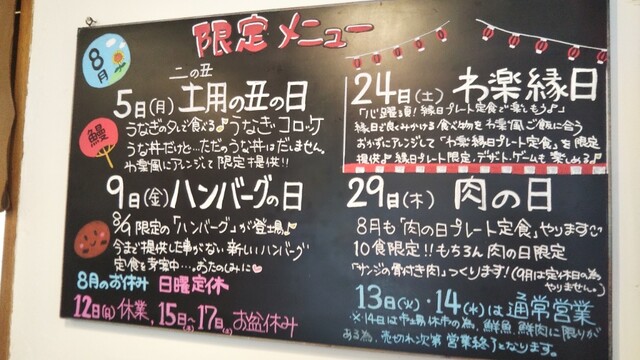 限定メニュー
8月
二の丑
5日(月)土用の丑の日
鰻
うなぎのタレで食べる♪うなぎコロッケ
うな丼だけど…ただのうな丼はだしません。
わ楽風にアレンジして限定提供!!
9日(金)ハンバーグの日
8/9限定の「ハンバーグ」が登場♪
今まで提供した事がない新しいハンバーグ
定食を考案中…おたのしみに♡
8月のお休み 日曜定休
12日(月)休業、15日(木)~17日(土)お盆休み
24日(土)わ楽縁日
「心踊る夏!縁日プレート定食で楽しもう♪」
縁日で良くみかける食べ物をわ楽風ご飯に合う
おかずにアレンジして「わ楽縁日プレート定食」を限定
提供♪縁日プレート限定・デザート・ゲームも楽しめる♪
29日(木)肉の日
8月も「肉の日プレート定食」やります
10食限定!!もちろん肉の日限定
「サンジの骨付き肉」つくります!(9月は定休日の為
やりません。)
13日(火)・14(水)は通常営業
※14日は市場休市の為、鮮魚、鮮肉に限りが
ある為、売切れ次第営業終了となります。